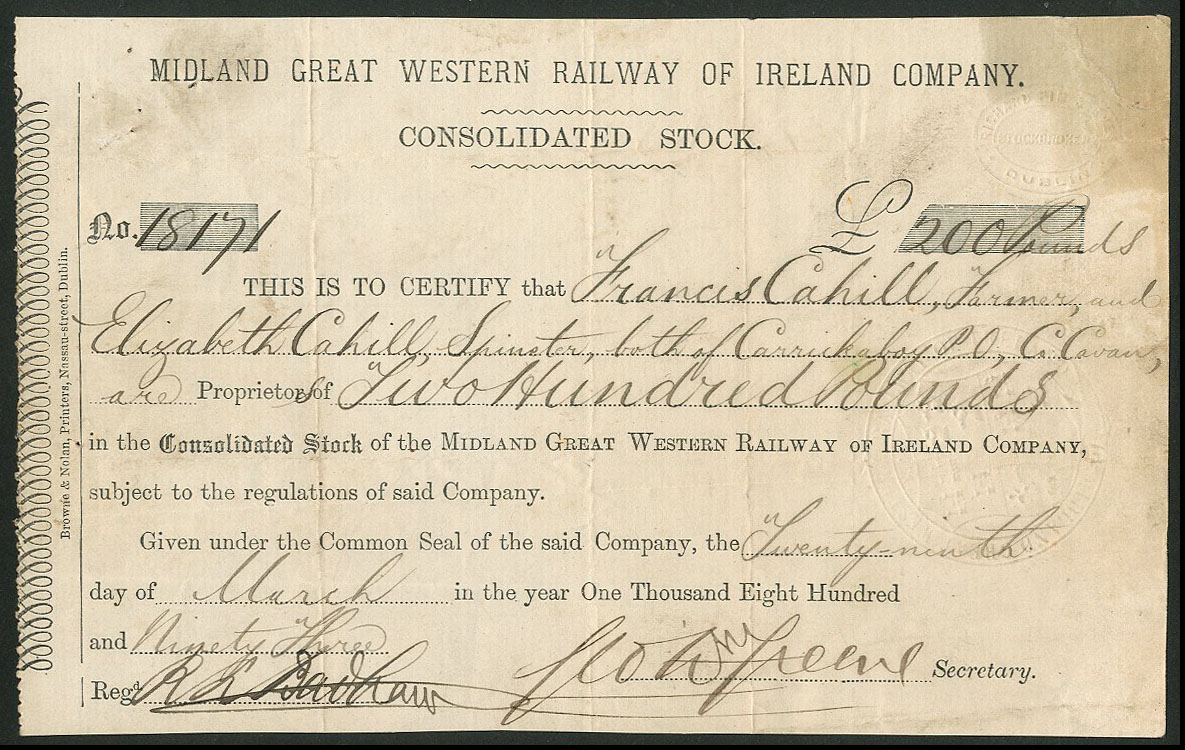 MIDLAND GREAT WESTERN RAILWAY OF IRELAND COMPANY.
CONSOLIDATED STOCK.
DUBLIN
No. 18171
£ 200 Pounds
THIS IS TO CERTIFY that Francis Cahill, Farmer, and
Elizabeth Cahill, Spinster, both of Carrickaboy P.O., Co. Cavan,
are Proprietors of Two Hundred Pounds
in the Consolidated Stock of the MIDLAND GREAT WESTERN RAILWAY OF IRELAND COMPANY,
subject to the regulations of said Company.
Given under the Common Seal of the said Company, the Twenty-ninth
day of March in the year One Thousand Eight Hundred
and Ninety Three
Regd. R R Badham
Geo Wm Greene Secretary.
Browne & Nolan, Printers, Nassau-street, Dublin.